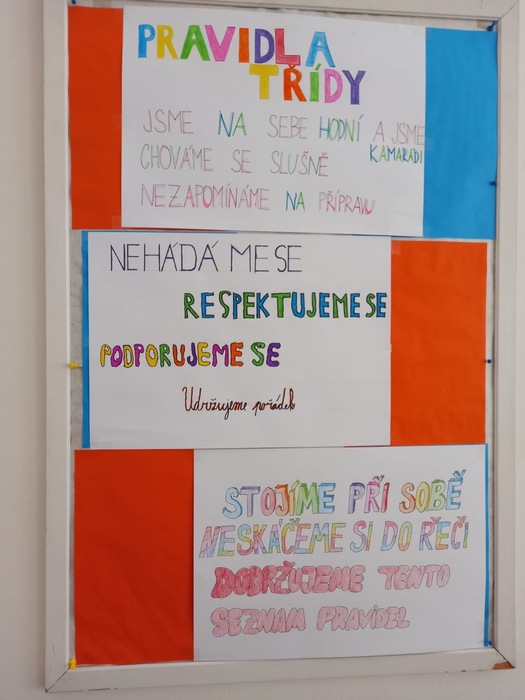 PRAVIDLA
TŘÍDY
JSME NA SEBE HODNÍ A JSME
KAMARÁDI
CHOVÁME SE SLUŠNĚ
NEZAPOMÍNÁME NA PŘÍPRAVU
NEHÁDÁMESE
RESPEKTUJEMESE
PODPORUJEME SE
Udržujeme pořádek
STOJÍME PŘI SOBĚ
NESKÁČEME SI DO ŘEČI
DODRŽUJEME TENTO
SEZNAM PRAVIDEL